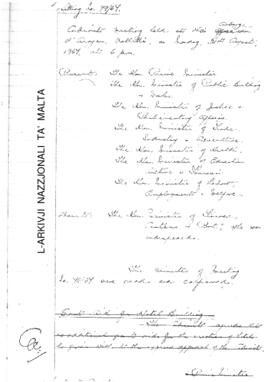 Meeting No. 79/64.
Cabinet meeting held at the Auberge
d'Aragon, Valletta, on Monday, 31st August,
1964, at 6 p.m.
Present: The Hon. Prime Minister
The Hon. Minister of Public Building
& Works
The Hon. Minister of Justice &
Parliamentary Affairs
The Hon. Minister of Trade
Industry & Agriculture
The Hon. Minister of Health
The Hon. Minister of Education
Culture & Tourism
The Hon. Minister of Labour,
Employment & Welfare
Absent: The Hon. Minister of Finance,
Customs & Port, who was
indisposed.
The minutes of Meeting
No. 78/64 were read and confirmed.
Building
The Cabinet agreed
Prime Minister
L-ARKIVJI NAZZJONALI TA' MALTA